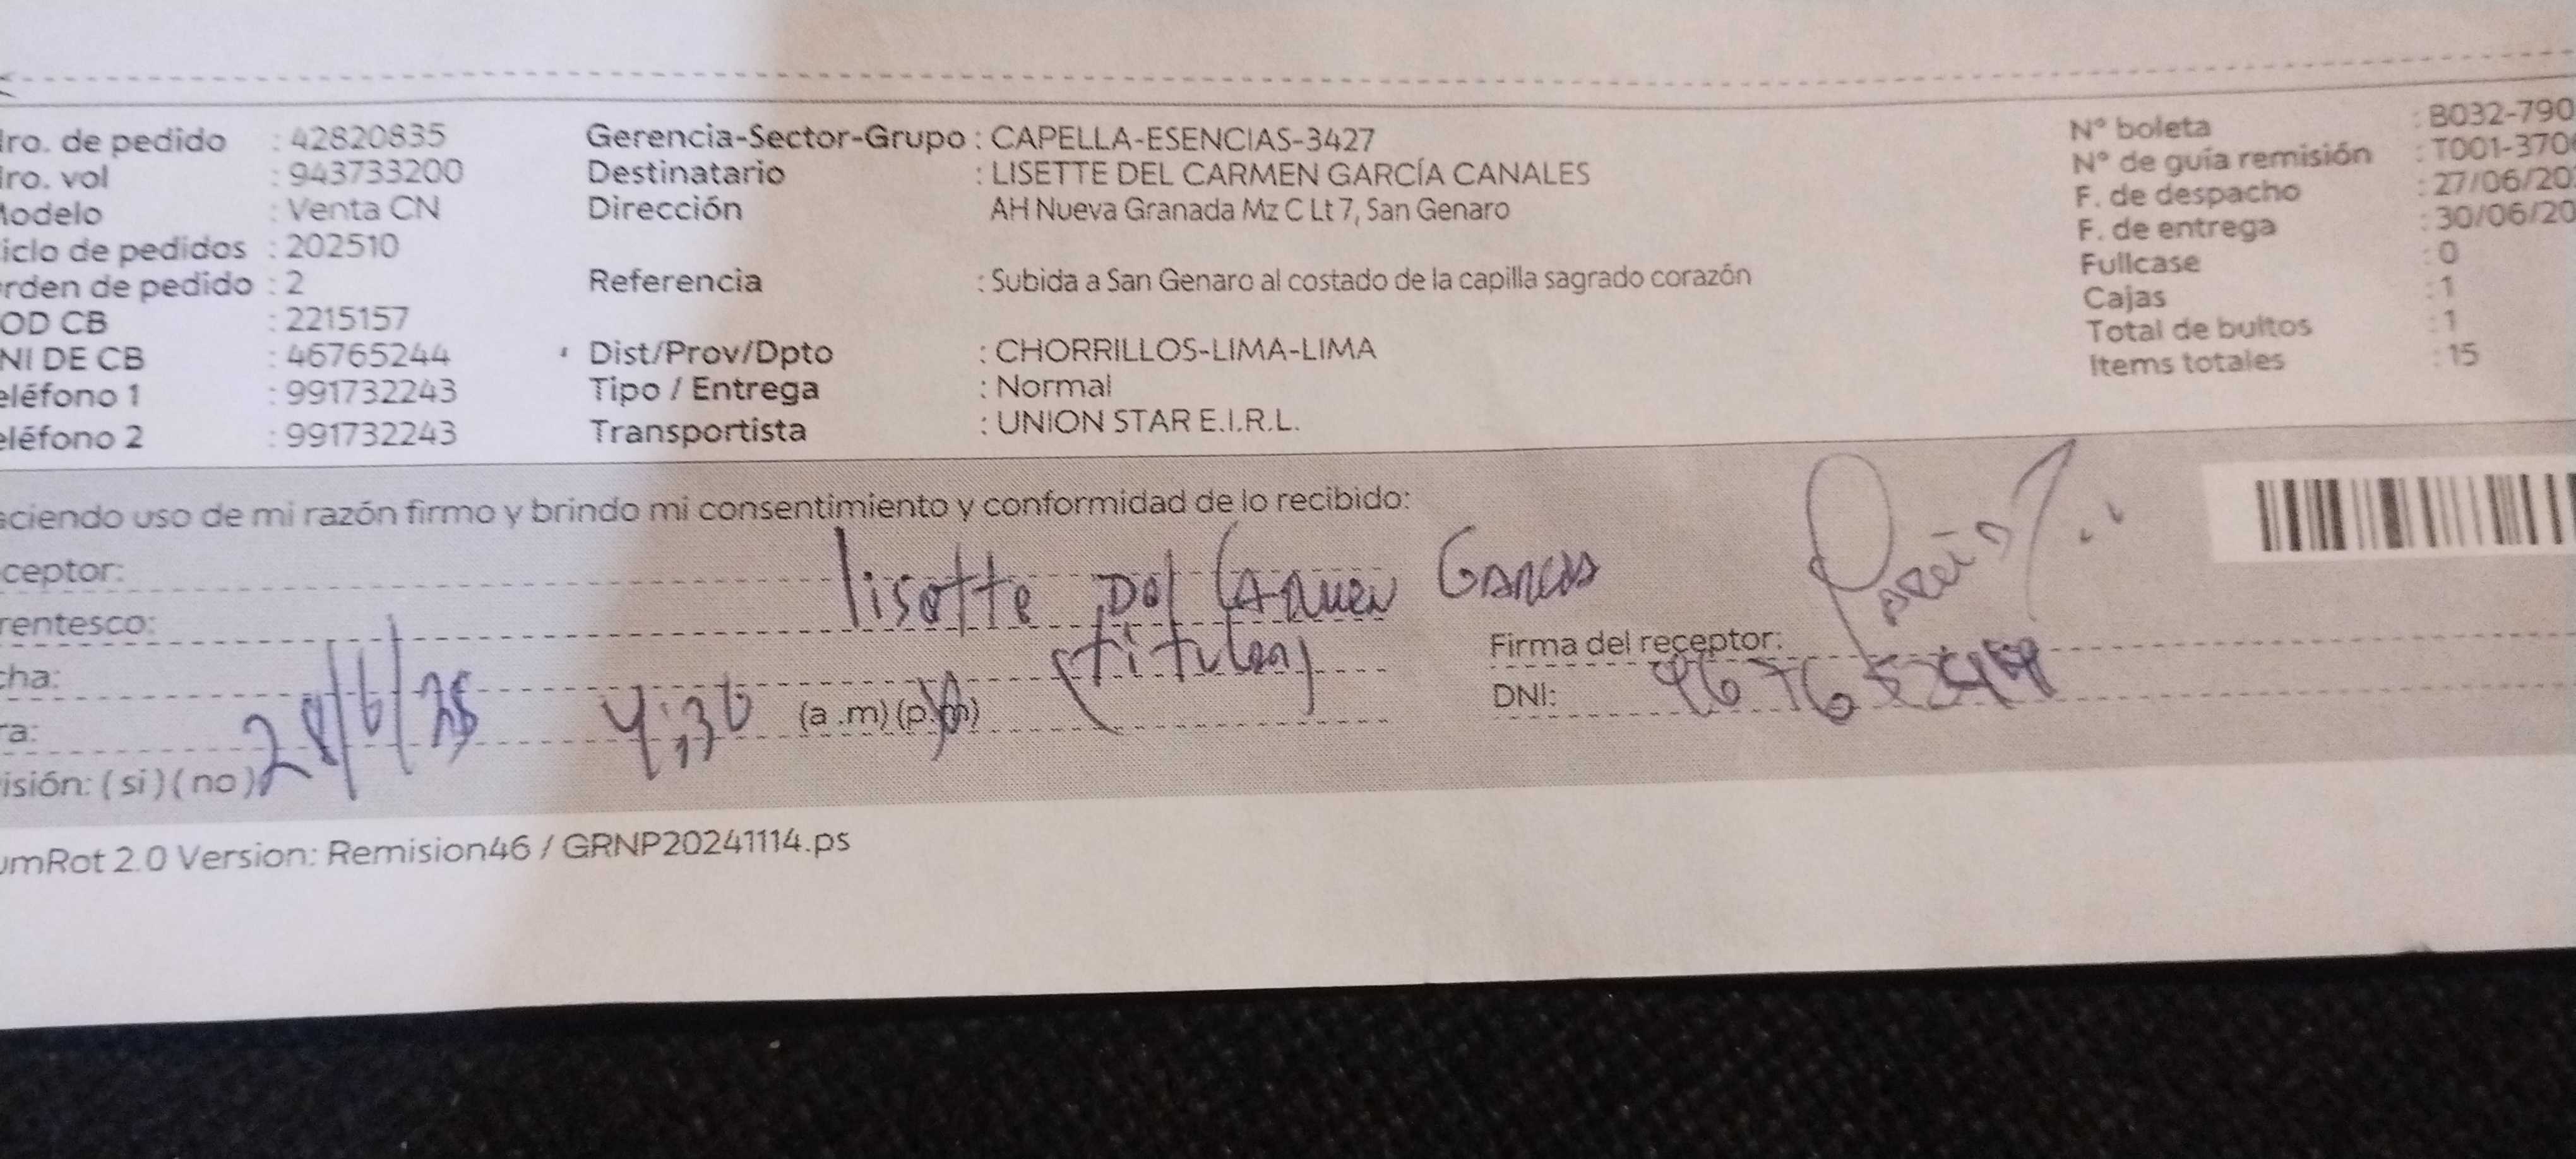 ro. de pedido : 42820835 Gerencia-Sector-Grupo : CAPELLA-ESENCIAS-3427 N° boleta : B032-790
ro. vol : 943733200 Destinatario : LISETTE DEL CARMEN GARCÍA CANALES N° de guía remisión : T001-370
Modelo : Venta CN Dirección AH Nueva Granada Mz C Lt 7, San Genaro F. de despacho : 27/06/20
iclo de pedidos : 202510 F. de entrega : 30/06/20
rden de pedido : 2 Referencia : Subida a San Genaro al costado de la capilla sagrado corazón Fullcase : 0
OD CB : 2215157 Cajas : 1
NI DE CB : 46765244 Dist/Prov/Dpto : CHORRILLOS-LIMA-LIMA Total de bultos : 1
eléfono 1 : 991732243 Tipo / Entrega : Normal Items totales : 15
eléfono 2 : 991732243 Transportista : UNION STAR E.I.R.L.
aciendo uso de mi razón firmo y brindo mi consentimiento y conformidad de lo recibido:
ceptor: lisette Del Carmen Garcia
rentesco: (titular) Firma del receptor:
cha: 28/6/25 DNI: 46765244
ra: 4:30 (a .m) (p.m)
isión: ( si ) ( no )
umRot 2.0 Version: Remision46 / GRNP20241114.ps